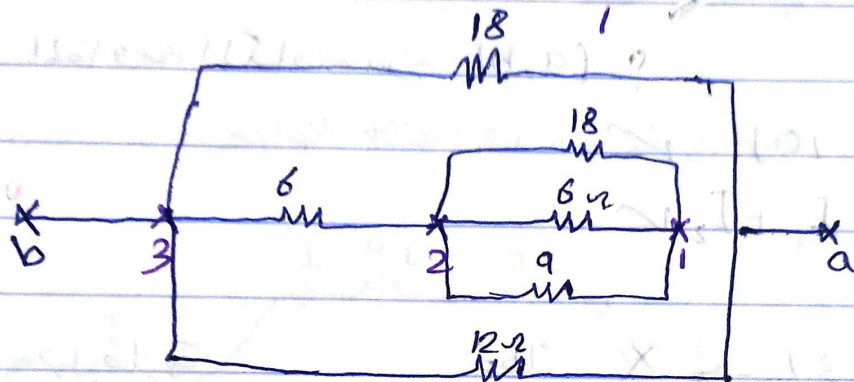 18 1
18
6 6Ω
b 3 2 1 a
9
12Ω